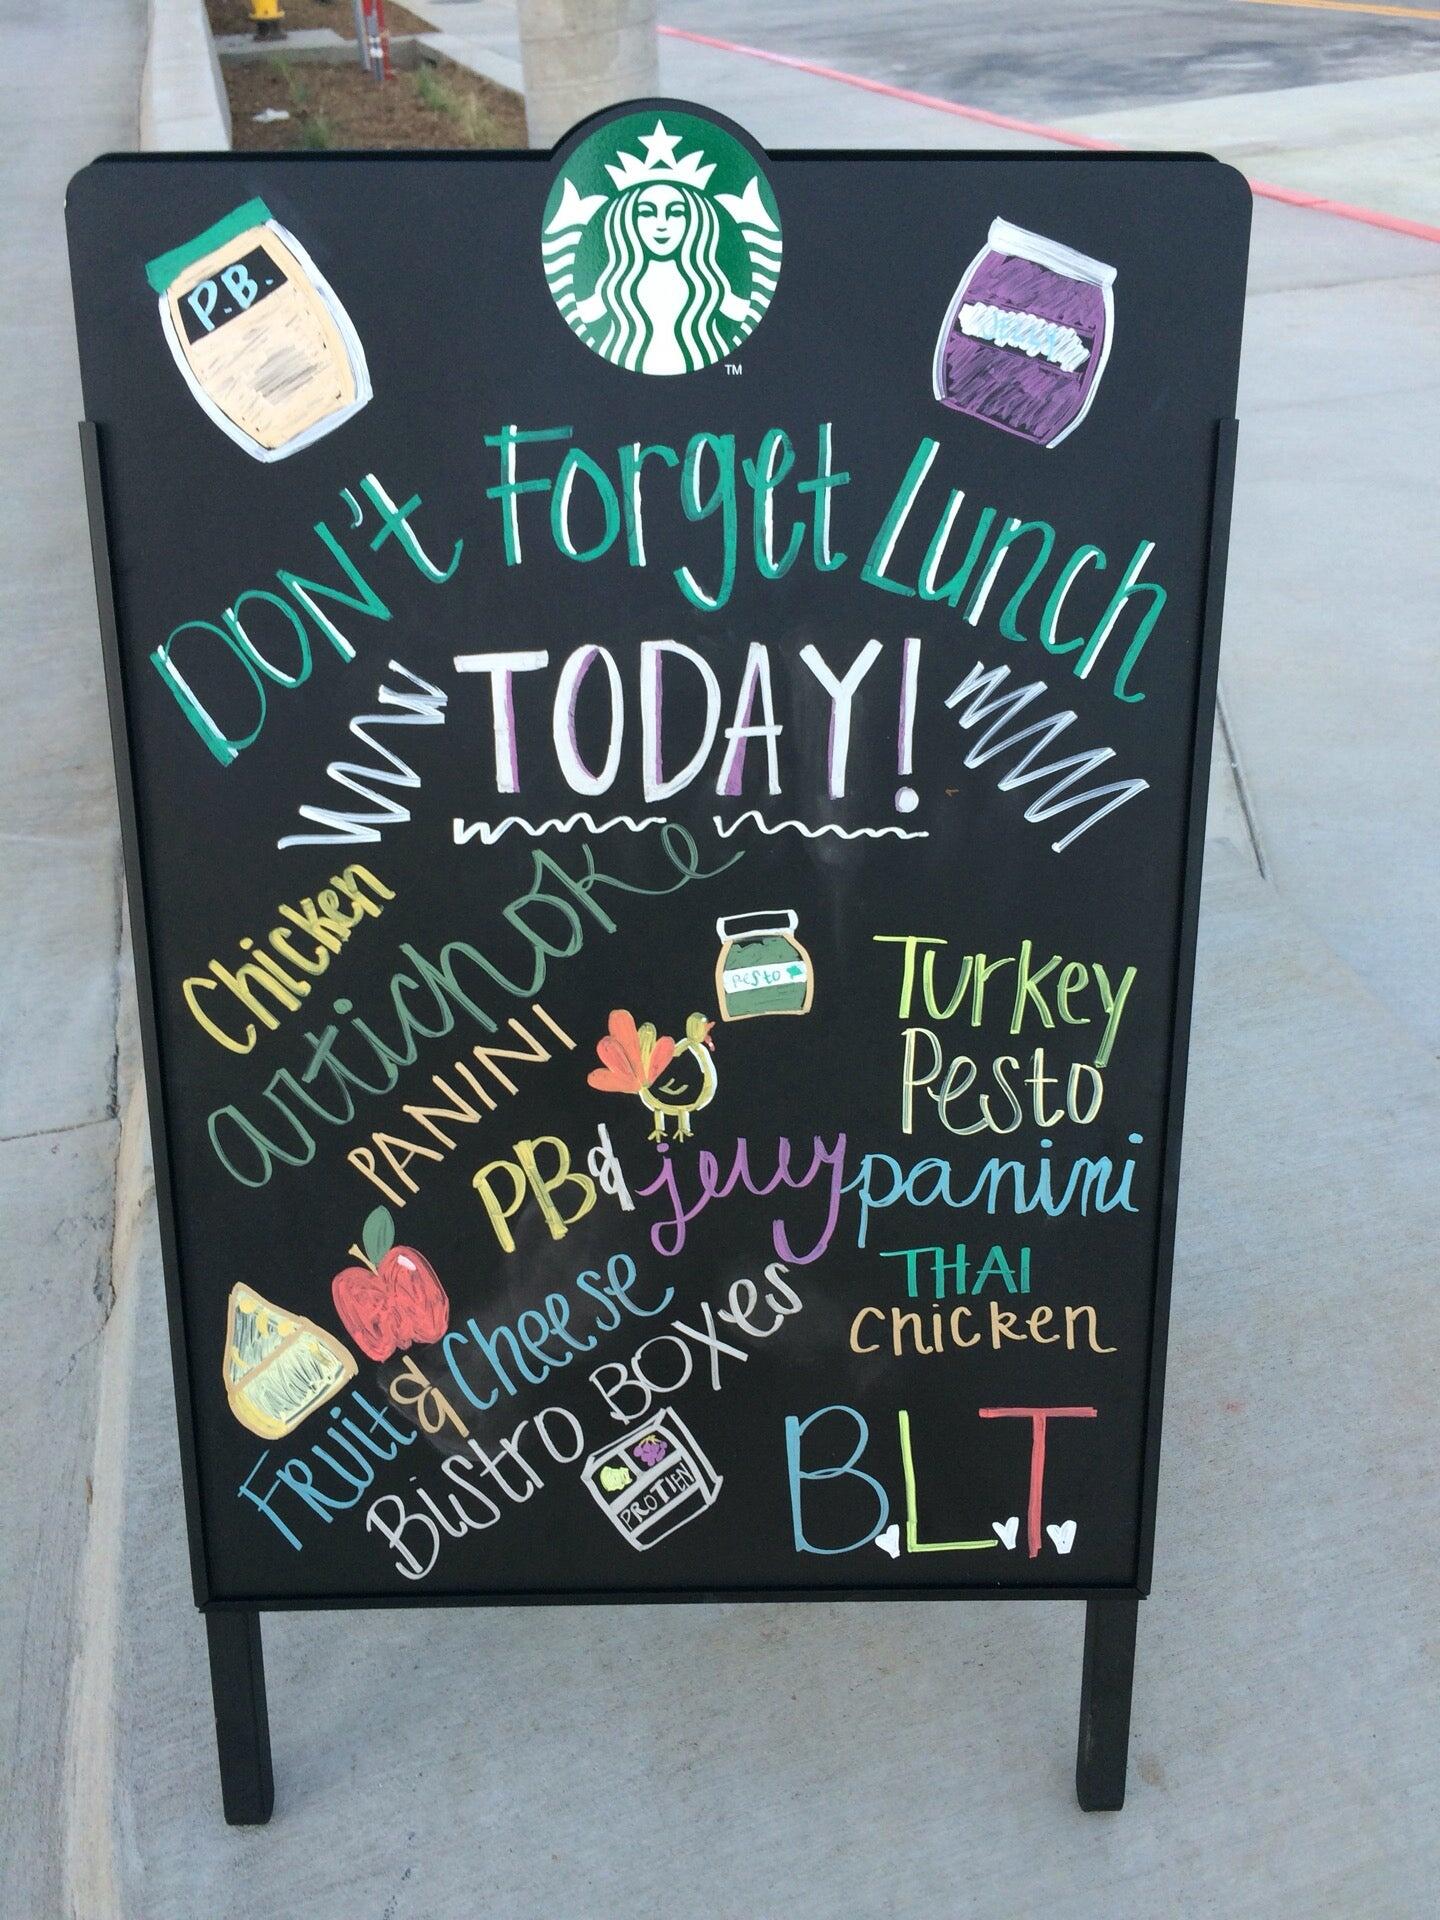 P.B.
JELLY
TM
DON't Forget Lunch
TODAY!
Chicken
artichoke
PANINI
Pesto
Turkey
Pesto
panini
PB & jelly
THAI
chicken
Fruit & Cheese
Bistro BOXes
PROTIEN
B.L.T.